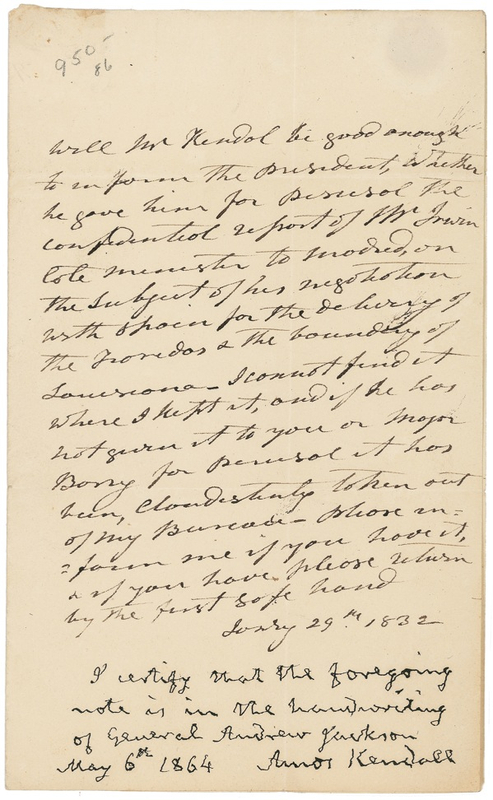 950-
86
Will Mr Kendol be good enough
to inform the President, Whether
he gave him for perusal the
confidential report of Mr Irwin
late minister to Madred, on
the Subject of his negotiation
with Spain for the delivery of
the Floridas & the boundery of
Louisiana – I cannot find it
where I kept it, and if he has
not given it to you or Major
Barry for perusal it has
been, Clandestinly taken out
of my Bureau – please in=
=form me if you have it,
& if you have please return
by the first safe hand
29th 1832
I certify that the foregoing
note is in the handwriting
of General Andrew Jackson
May 6th 1864 Amos Kendall